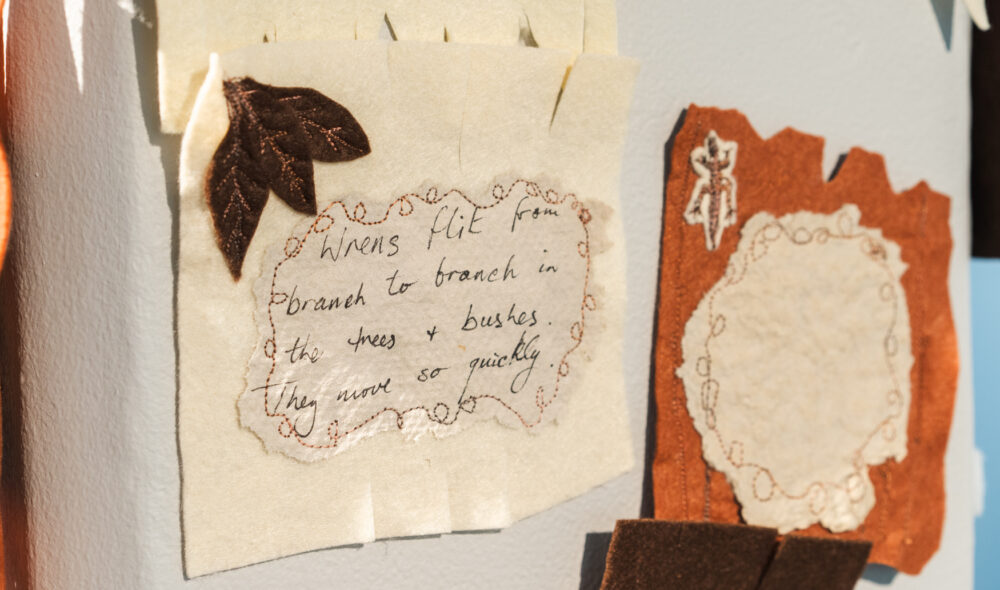 Wrens flit from
branch to branch in
the trees + bushes.
They move so quickly.